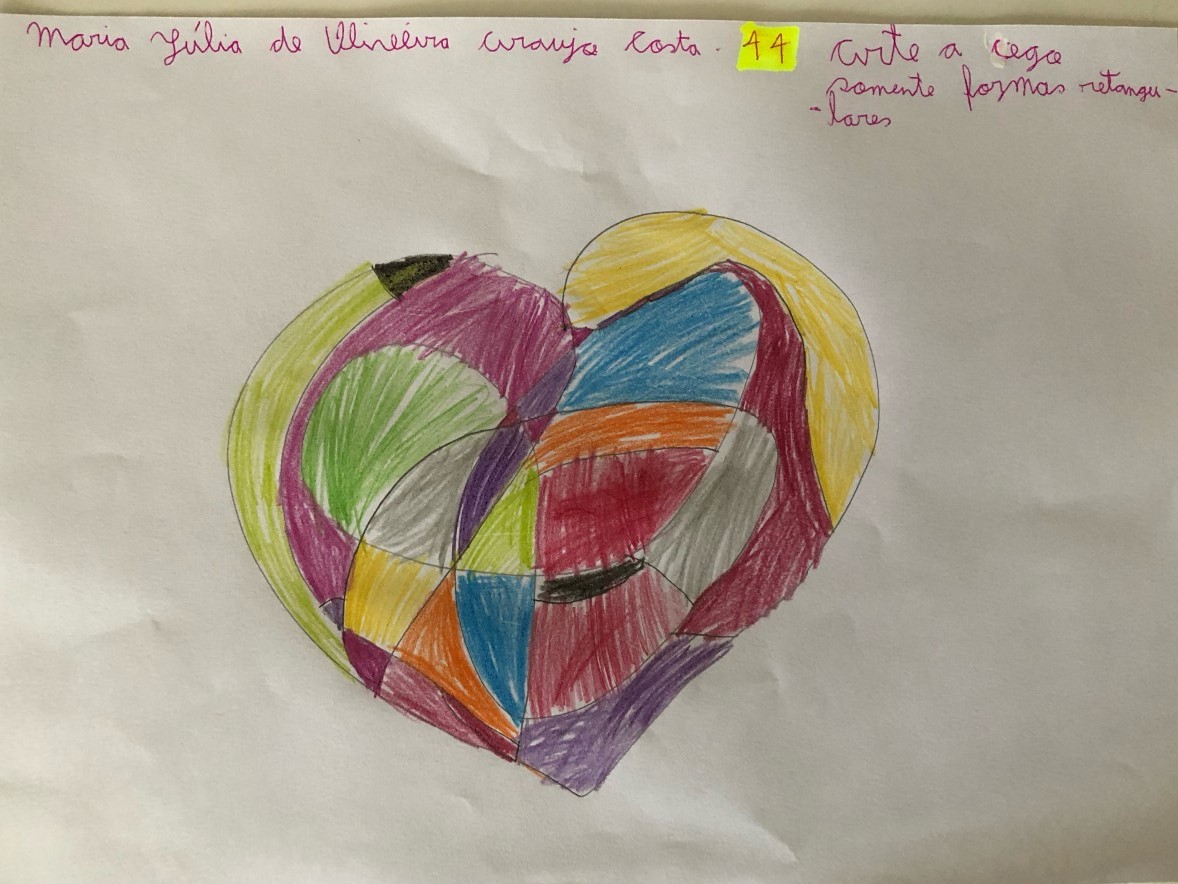 Maria Júlia de Oliveira Araujo Costa. 44 arte a cega
somente formas retangu-
-lares